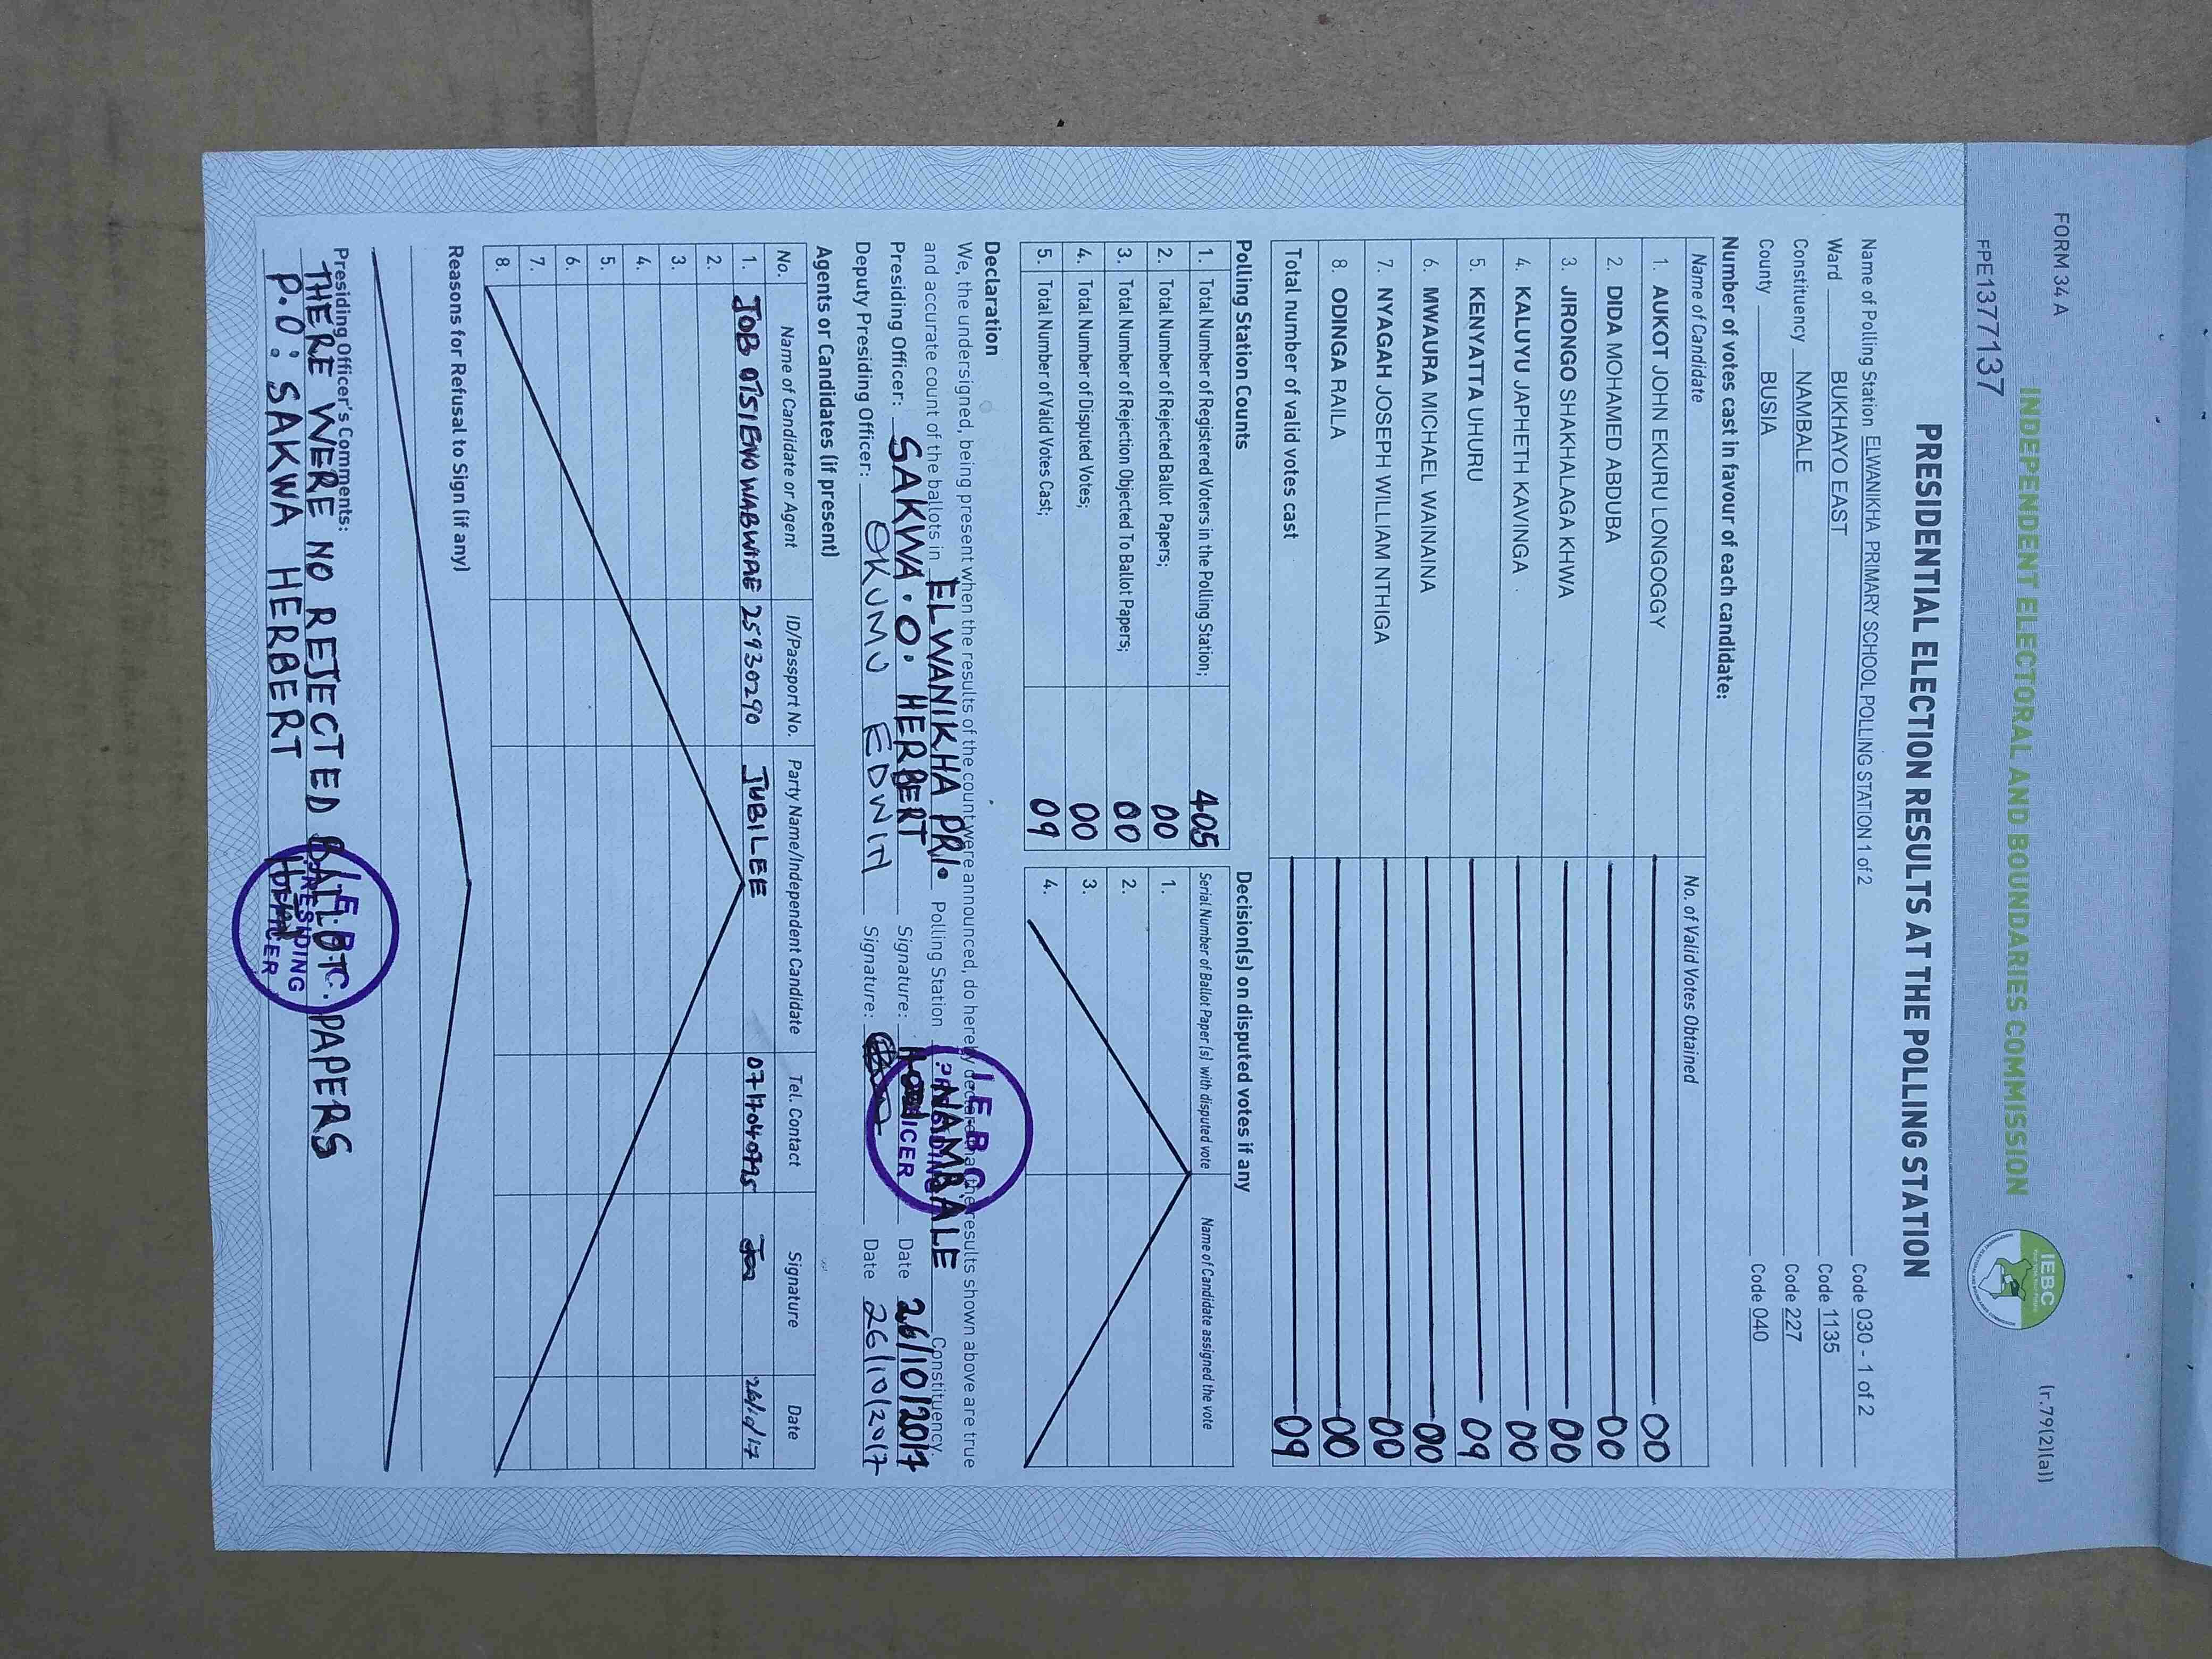 FORM 34 A
(r.79(2)(a))
INDEPENDENT ELECTORAL AND BOUNDARIES COMMISSION
IEBC
FPE1377137
PRESIDENTIAL ELECTION RESULTS AT THE POLLING STATION
Name of Polling Station ELWANIKHA PRIMARY SCHOOL POLLING STATION 1 of 2 Code 030 - 1 of 2
Ward BUKHAYO EAST Code 1135
Constituency NAMBALE Code 227
County BUSIA Code 040
Number of votes cast in favour of each candidate:
Name of Candidate No. of Valid Votes Obtained
1. AUKOT JOHN EKURU LONGOGGY 00
2. DIDA MOHAMED ABDUBA 00
3. JIRONGO SHAKHALAGA KHWA 00
4. KALUYU JAPHETH KAVINGA 00
5. KENYATTA UHURU 09
6. MWAURA MICHAEL WAINAINA 00
7. NYAGAH JOSEPH WILLIAM NTHIGA 00
8. ODINGA RAILA 00
Total number of valid votes cast 09
Polling Station Counts
1. Total Number of Registered Voters in the Polling Station; 405
2. Total Number of Rejected Ballot Papers; 00
3. Total Number of Rejection Objected To Ballot Papers; 00
4. Total Number of Disputed Votes; 00
5. Total Number of Valid Votes Cast; 09
Decision(s) on disputed votes if any
Serial Number of Ballot Paper (s) with disputed vote Name of Candidate assigned the vote
1.
2.
3.
4.
Declaration
We, the undersigned, being present when the results of the count were announced, do hereby declare that the results shown above are true
and accurate count of the ballots in ELWANIKHA PRI. Polling Station NAMBALE Constituency.
Presiding Officer: SAKWA. O. HERBERT Signature: Date 26/10/2017
Deputy Presiding Officer: OKUMU EDWIN Signature: Date 26/10/2017
I.E.B.C.
PRESIDING
OFFICER
Agents or Candidates (if present)
No. Name of Candidate or Agent ID/Passport No. Party Name/Independent Candidate Tel. Contact Signature Date
1. JOB OTSIENO WABWIRE 25930290 JUBILEE 26/10/17
2.
3.
4.
5.
6.
7.
8.
Reasons for Refusal to Sign (if any)
Presiding Officer's Comments:
THERE WERE NO REJECTED BALLOT PAPERS
P.O: SAKWA HERBERT
I.E.B.C.
PRESIDING
OFFICER